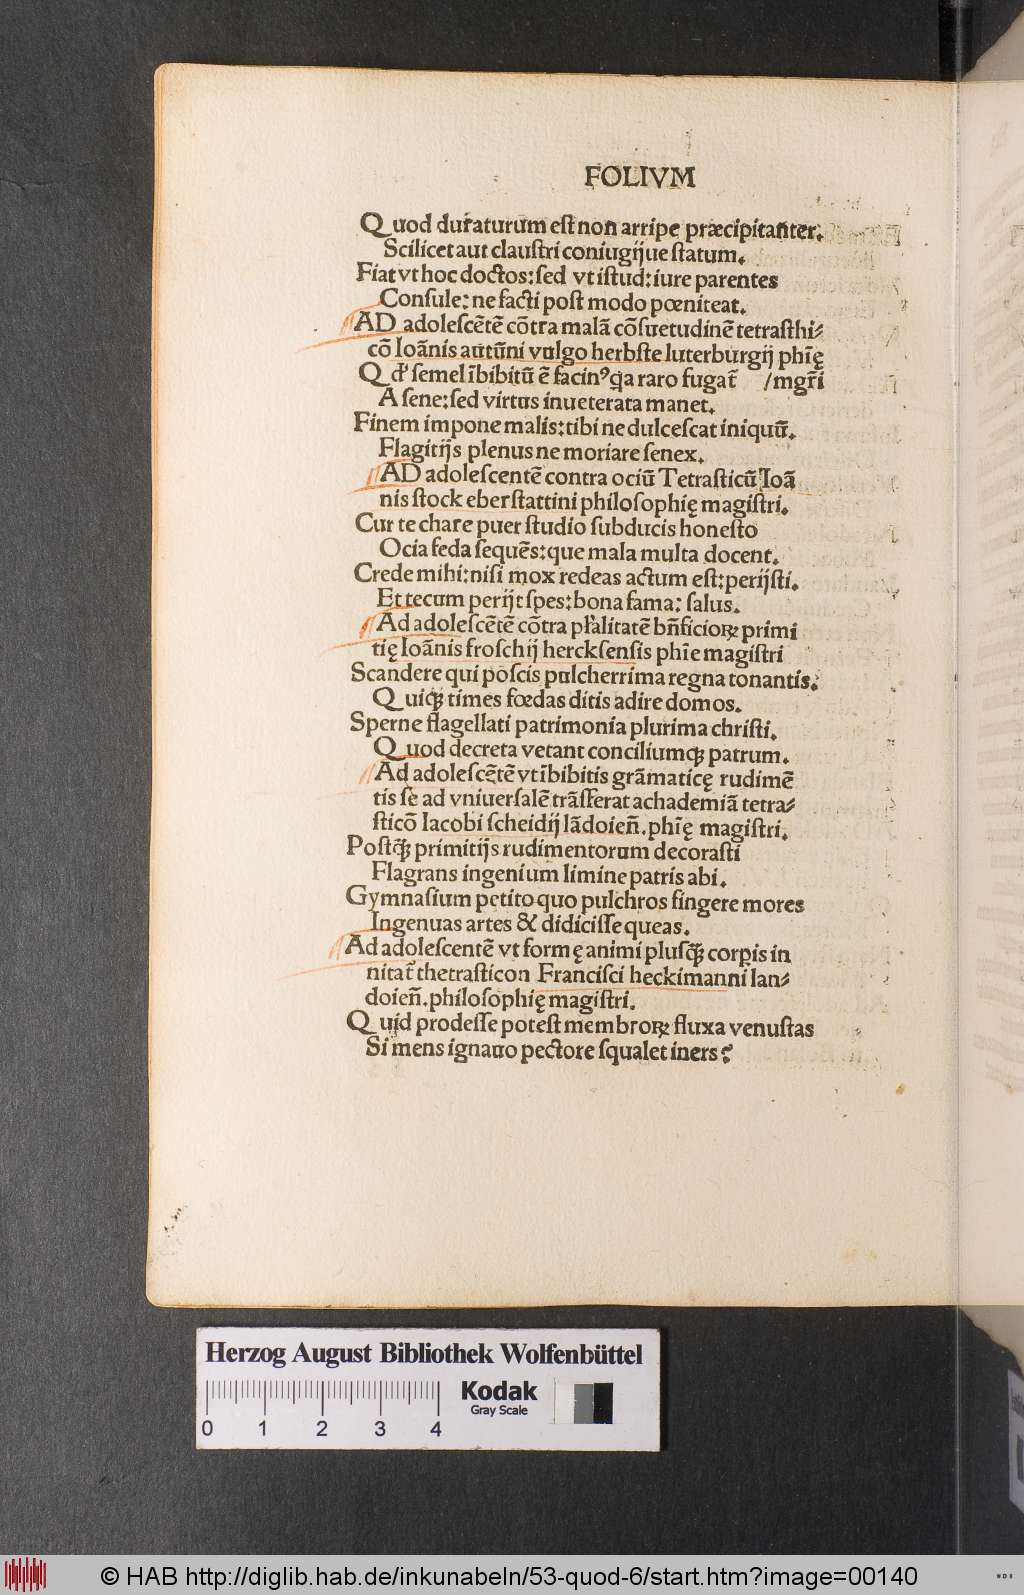 FOLIVM
Quod duraturum est non arripe præcipitanter.
Scilicet aut claustri coniugijue statum.
Fiat vt hoc doctos: sed vt istud: iure parentes
Consule: ne facti post modo pœniteat.
AD adolescētē cōtra malā cōsuetudinē tetrasthi⸗
cō Ioānis autūni vulgo herbste luterburgij phīę
Qd semel ībibitū ē facinꝰ qa raro fugat̄ /mgr̄i
A sene: sed virtus inueterata manet.
Finem impone malis: tibi ne dulcescat iniquū.
Flagitijs plenus ne moriare senex.
AD adolescentē contra ociū Tetrasticū Ioā
nis stock eberstattini philosophię magistri.
Cur te chare puer studio subducis honesto
Ocia feda sequēs: que mala multa docent.
Crede mihi: nisi mox redeas actum est: perijsti.
Et tecum perijt spes: bona fama: salus.
Ad adolescētē cōtra pl̄alitatē bn̄ficioꝝ primi
tię Ioānis froschij hercksensis phīe magistri
Scandere qui poscis pulcherrima regna tonantis.
Quiqꝫ times fœdas ditis adire domos.
Sperne flagellati patrimonia plurima christi.
Quod decreta vetant conciliumqꝫ patrum.
Ad adolescētē vt ībibitis grāmaticę rudimē
tis se ad vniuersalē trāsferat achademiā tetra⸗
sticō Iacobi scheidij lādoien̄. phīę magistri.
Postqꝫ primitijs rudimentorum decorasti
Flagrans ingenium limine patris abi.
Gymnasium petito quo pulchros fingere mores
Ingenuas artes & didicisse queas.
Ad adolescentē vt formę animi plusqꝫ corpis in
nitat̄ thetrasticon Francisci heckimanni lan⸗
doien̄. philosophię magistri.
Quid prodesse potest membroꝝ fluxa venustas
Si mens ignauo pectore squalet iners?
Herzog August Bibliothek Wolfenbüttel
Kodak
Gray Scale
0 1 2 3 4
© HAB http://diglib.hab.de/inkunabeln/53-quod-6/start.htm?image=00140